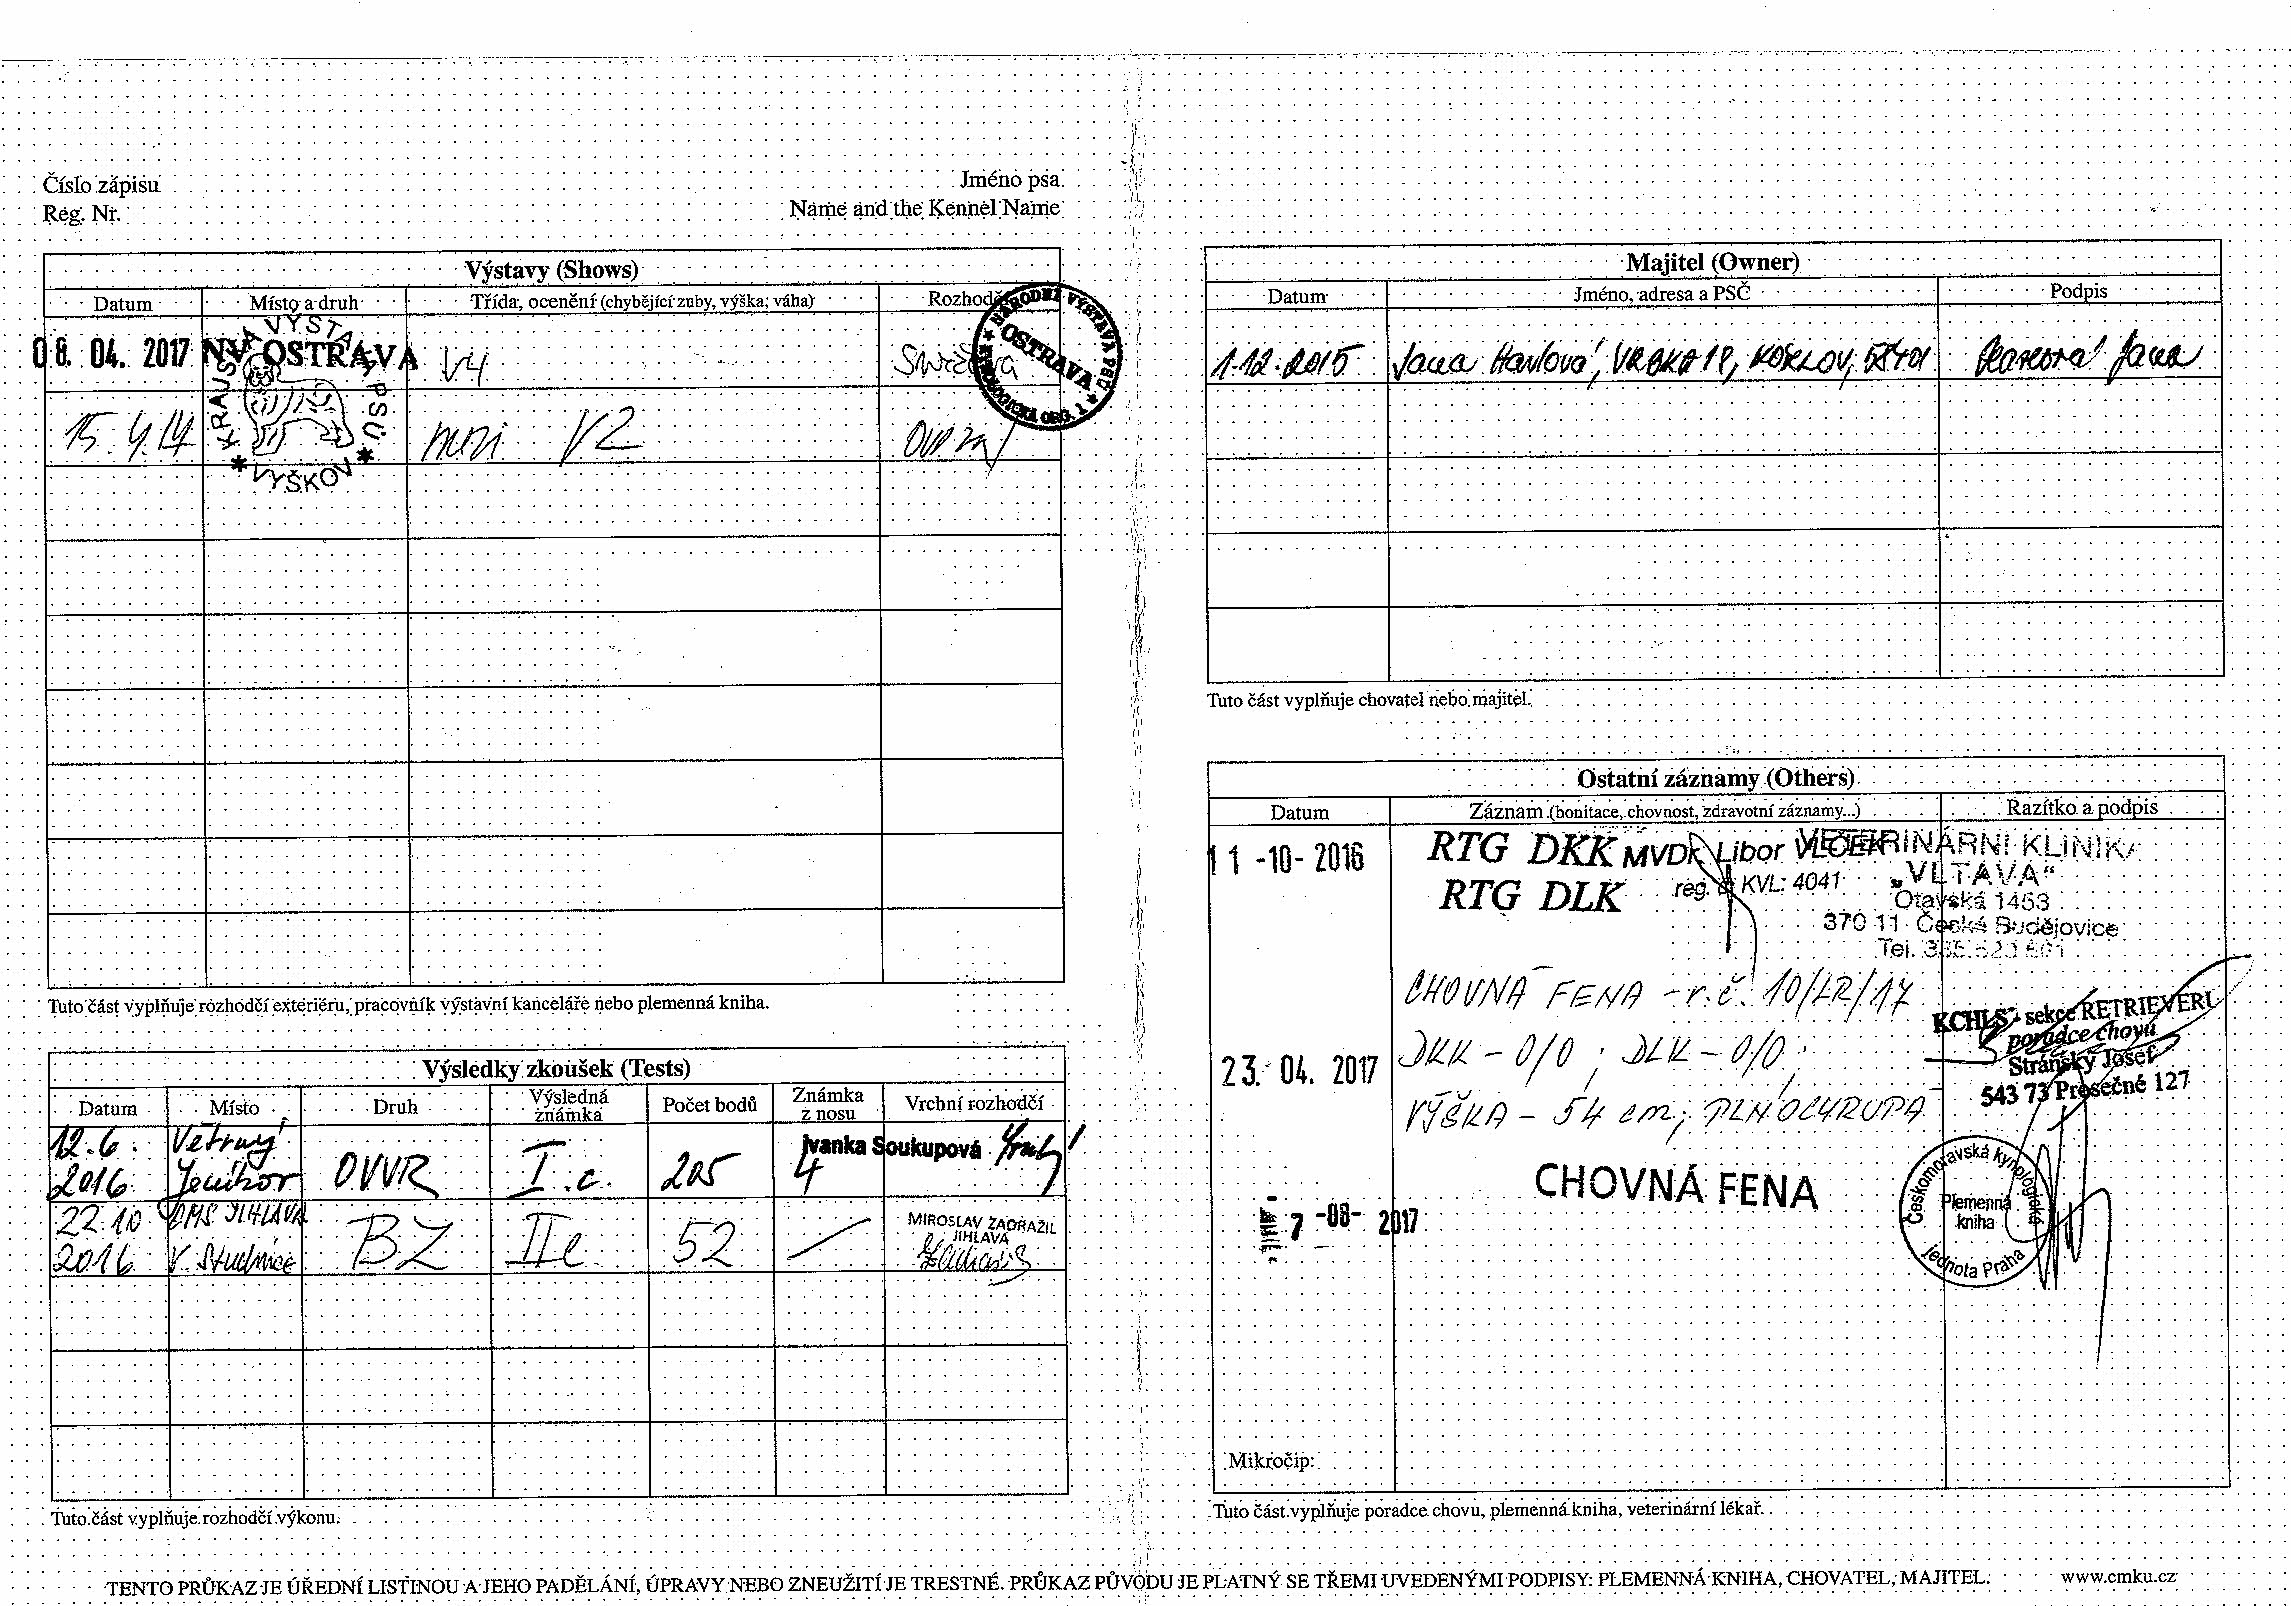 Číslo zápisu
Reg. Nr.
Jméno psa
Name and the Kennel Name
Výstavy (Shows)
Datum Místo a druh Třída, ocenění (chybějící zuby, výška, váha) Rozhodčí
08. 04. 2017 NV OSTRAVA V4
NÁRODNÍ VÝSTAVA PSŮ
OSTRAVA
KRAJSKÁ VÝSTAVA PSŮ
VYŠKOV
15. 4. V2
Tuto část vyplňuje rozhodčí exteriéru, pracovník výstavní kanceláře nebo plemenná kniha.
Výsledky zkoušek (Tests)
Datum Místo Druh Výsledná známka Počet bodů Známka z nosu Vrchní rozhodčí
12. 6. 2016 Větrný Jeníkov OVVR I.c. 205 4 Ivanka Soukupová
22. 10 2016 OMS JIHLAVA V. Studnice BZ IIc 52 — MIROSLAV ZADRAŽIL JIHLAVA
Tuto část vyplňuje rozhodčí výkonu.
Majitel (Owner)
Datum Jméno, adresa a PSČ Podpis
1.12.2015 Jana Havlová, 18, KOZLOV, Jana
Tuto část vyplňuje chovatel nebo majitel.
Ostatní záznamy (Others)
Datum Záznam (bonitace, chovnost, zdravotní záznamy...) Razítko a podpis
11 -10- 2016 RTG DKK MVDr. Libor VLČEK VETERINÁRNÍ KLINIKA
RTG DLK reg. č. KVL: 4041 „VLTAVA"
Otavská 1453
370 11 České Budějovice
Tel.
CHOVNÁ FENA - r.č. 10/LR/17
KCHLS - sekce RETRIEVERŮ
poradce chovu
Stránský Josef
543 73 Prosečné 127
23. 04. 2017 DKK - 0/0 ; DLK - 0/0 ;
VÝŠKA - 54 cm ; PLNOCHRUPÁ
CHOVNÁ FENA
7 -08- 2017
Českomoravská kynologická
Plemenná
kniha
Jednota Praha
Mikročip:
Tuto část vyplňuje poradce chovu, plemenná kniha, veterinární lékař.
TENTO PRŮKAZ JE ÚŘEDNÍ LISTINOU A JEHO PADĚLÁNÍ, ÚPRAVY NEBO ZNEUŽITÍ JE TRESTNÉ. PRŮKAZ PŮVODU JE PLATNÝ SE TŘEMI UVEDENÝMI PODPISY: PLEMENNÁ KNIHA, CHOVATEL, MAJITEL. www.cmku.cz